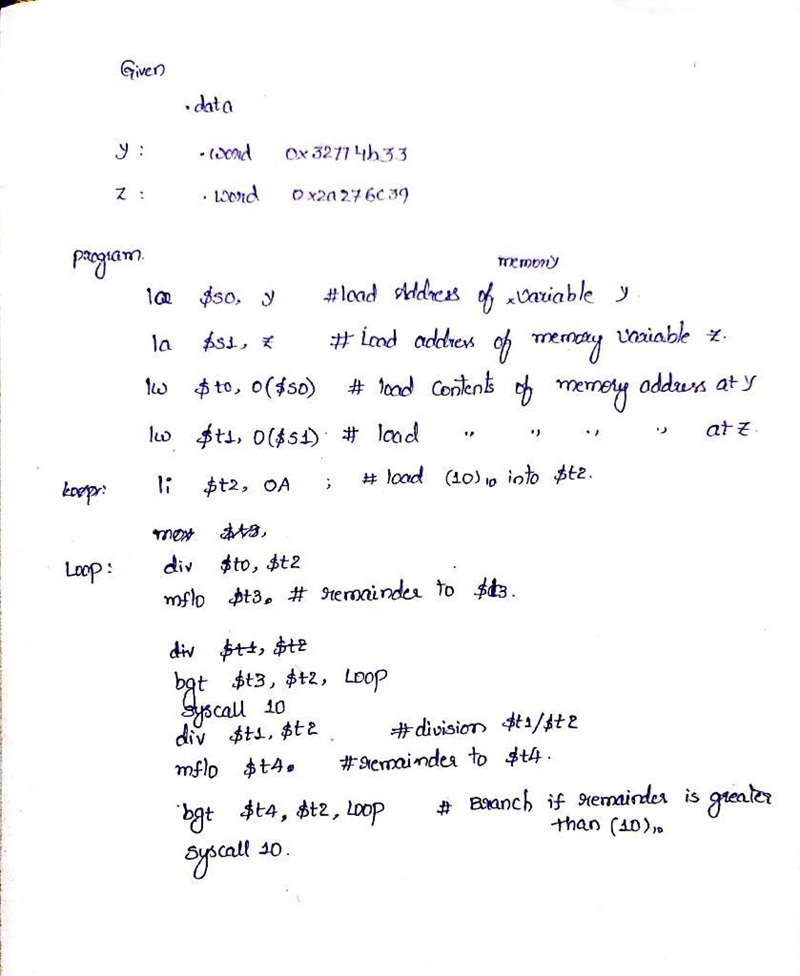 Given
.data
y : .word 0x32774b33
z : .word 0x2a276c39
program.
memory
la $s0, y #load Address of variable y.
la $s1, z # Load address of memory variable z.
lw $t0, 0($s0) # load contents of memory address at y
lw $t1, 0($s1) # load " " " " at z.
li $t2, 0A ; # load (10)10 into $t2.
Loop: div $t0, $t2
mflo $t3. # remainder to $t3.
div $t1, $t2
bgt $t3, $t2, LOOP
Syscall 10
div $t1, $t2 #division $t1/$t2
mflo $t4. #remainder to $t4.
bgt $t4, $t2, Loop # Branch if remainder is greater
than (10)10
Syscall 10.